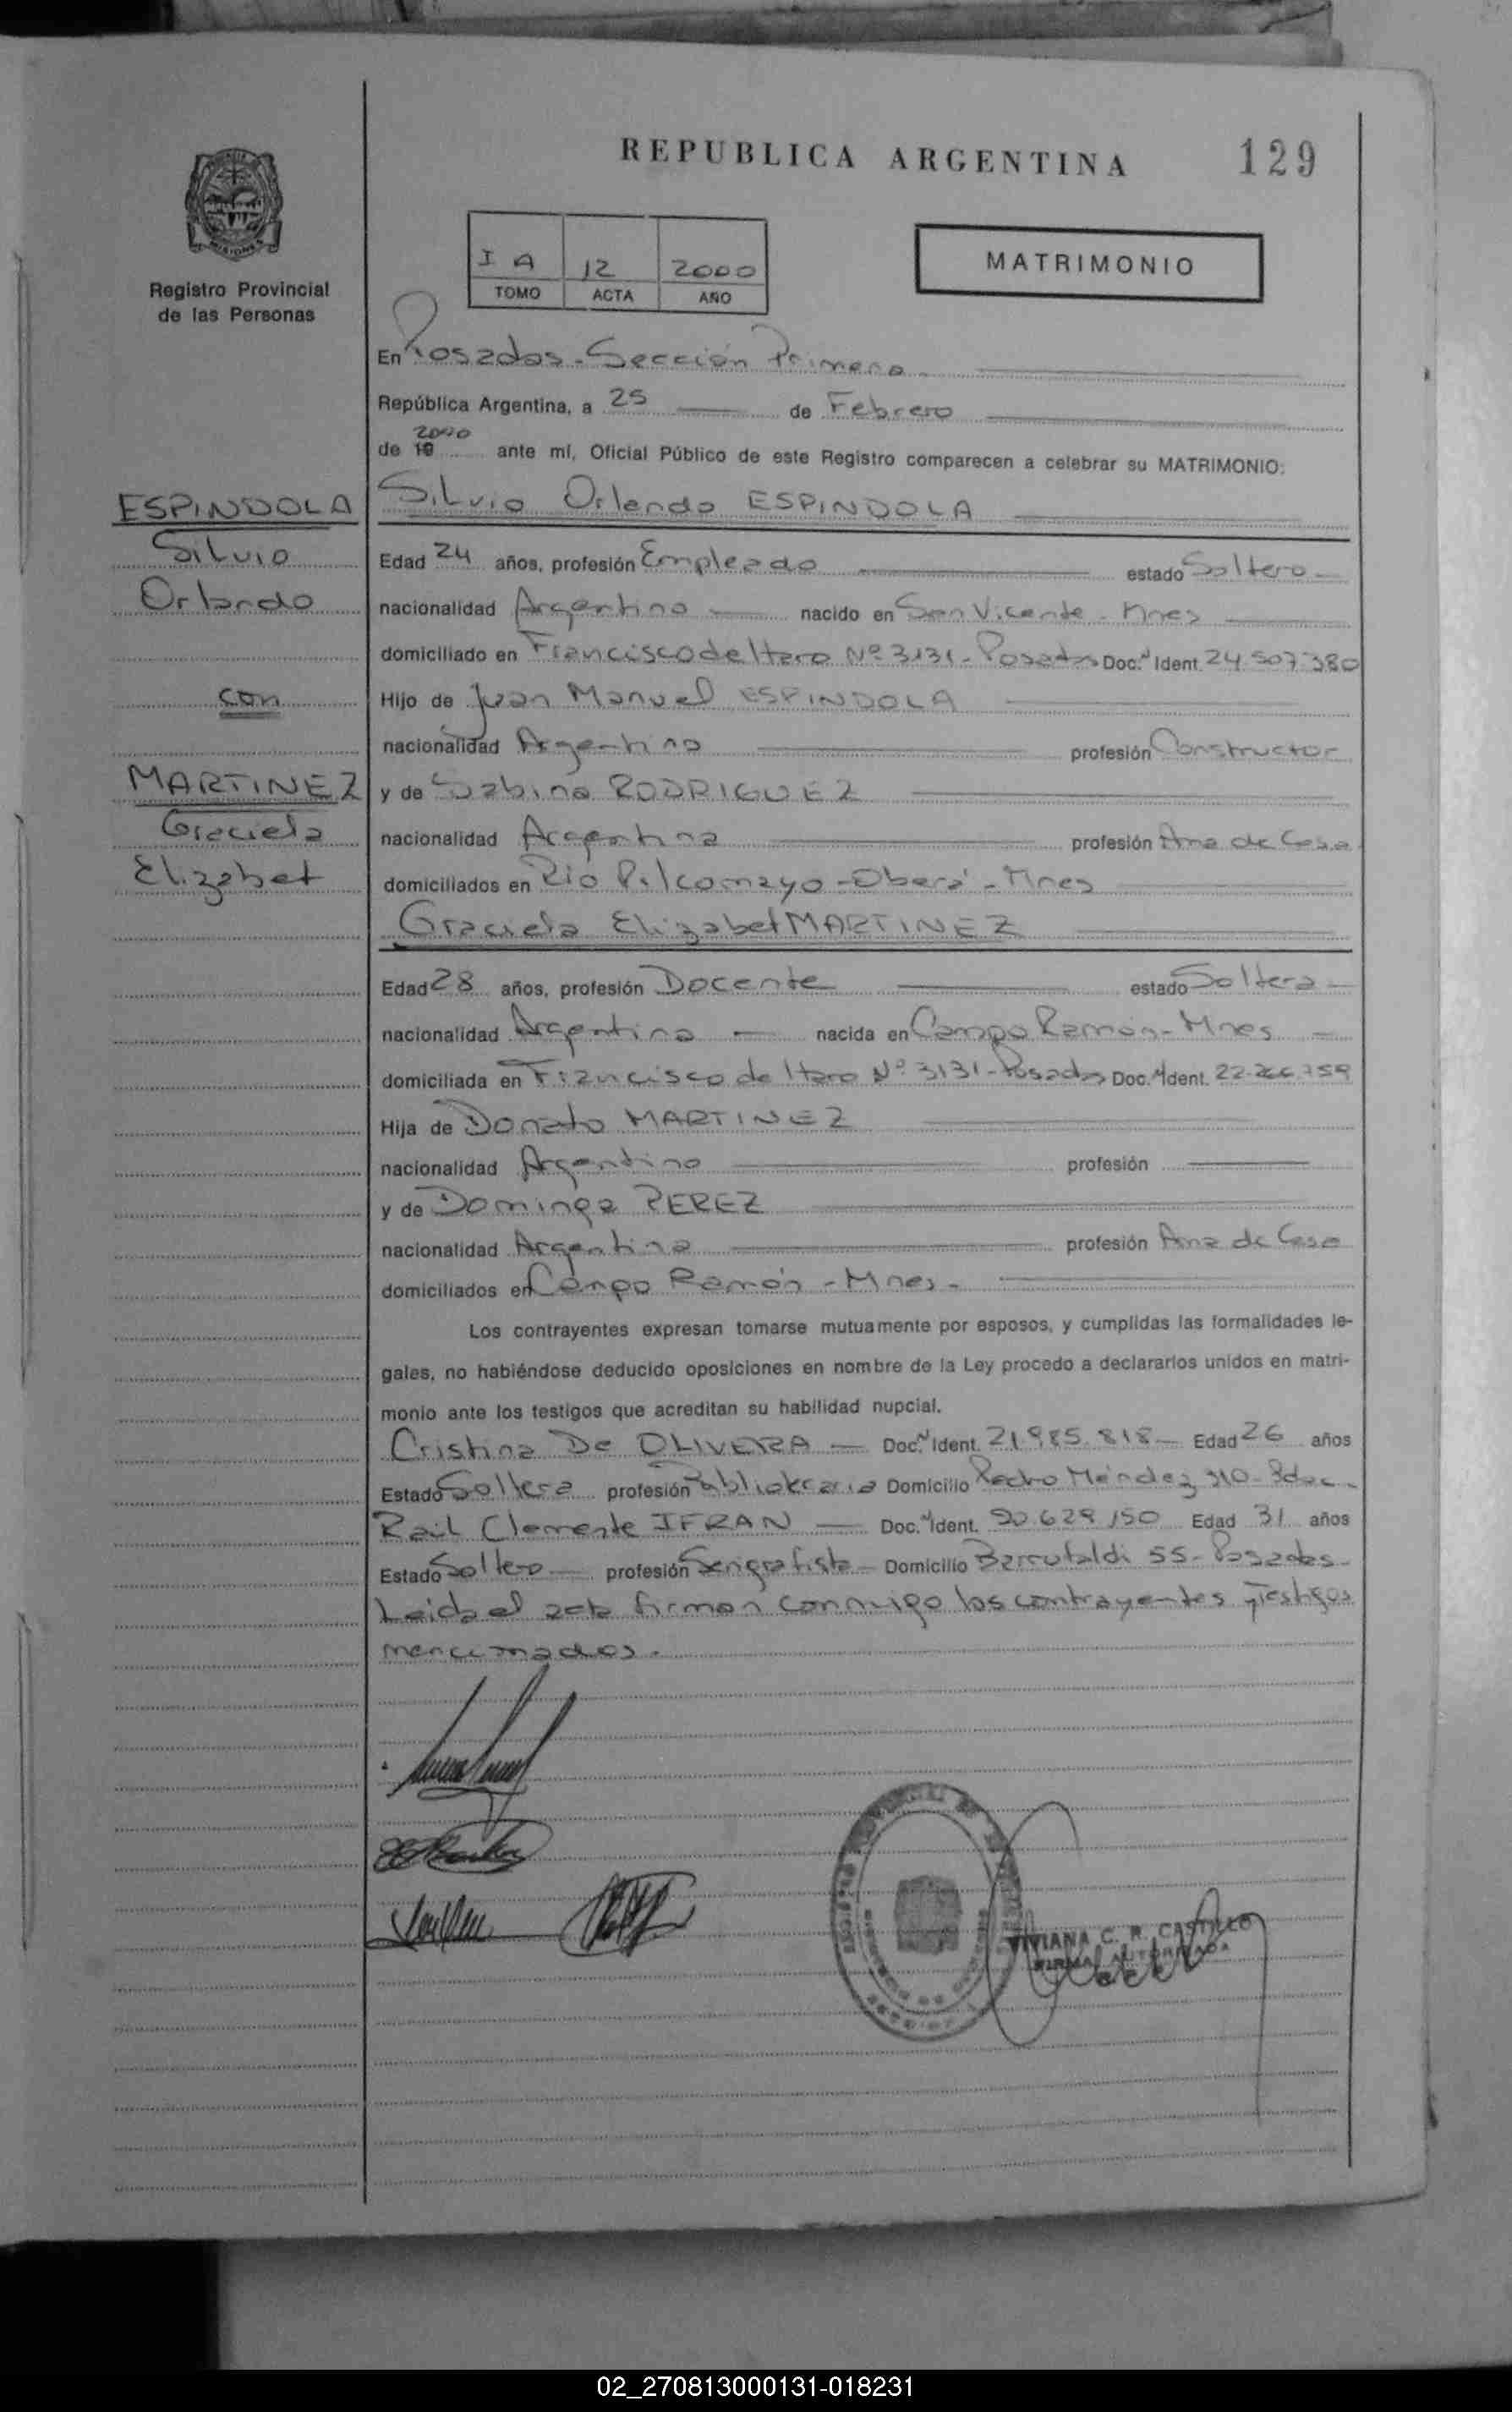 REPUBLICA ARGENTINA 129
Registro Provincial
de las Personas
I A 12 2000
TOMO ACTA AÑO
MATRIMONIO
En Posadas - Sección Primera -
República Argentina, a 25 de Febrero
de 19 2000 ante mí, Oficial Público de este Registro comparecen a celebrar su MATRIMONIO:
ESPINDOLA
Silvio
Orlando
con
MARTINEZ
Graciela
Elizabet
Silvio Orlando ESPINDOLA
Edad 24 años, profesión Empleado estado Soltero
nacionalidad Argentino nacido en San Vicente - Mnes
domiciliado en Francisco de Haro Nº 3131 - Posadas Doc. Ident. 24.507.380
Hijo de Juan Manuel ESPINDOLA
nacionalidad Argentino profesión Constructor
y de Sabina RODRIGUEZ
nacionalidad Argentina profesión Ama de Casa
domiciliados en Rio Pilcomayo - Oberá - Mnes
Graciela Elizabet MARTINEZ
Edad 28 años, profesión Docente estado Soltera
nacionalidad Argentina nacida en Campo Ramón - Mnes
domiciliada en Francisco de Haro Nº 3131 - Posadas Doc. Ident. 22.266.759
Hija de Donato MARTINEZ
nacionalidad Argentino profesión
y de Dominga PEREZ
nacionalidad Argentina profesión Ama de Casa
domiciliados en Campo Ramón - Mnes -
Los contrayentes expresan tomarse mutuamente por esposos, y cumplidas las formalidades le-
gales, no habiéndose deducido oposiciones en nombre de la Ley procedo a declararlos unidos en matri-
monio ante los testigos que acreditan su habilidad nupcial.
Cristina De OLIVERA - Doc. Ident. 21.985.818 - Edad 26 años
Estado Soltera profesión Bibliotecaria Domicilio Pedro Méndez 310 - Pdas -
Raúl Clemente IFRAN - Doc. Ident. 90.629.150 Edad 31 años
Estado Soltero profesión Serigrafista - Domicilio Barrufaldi 55 - Posadas -
Leida el acta firman conmigo los contrayentes y Testigos
mencionados.
VIVIANA C. R. CASTILLO
FIRMA AUTORIZADA
02_270813000131-018231